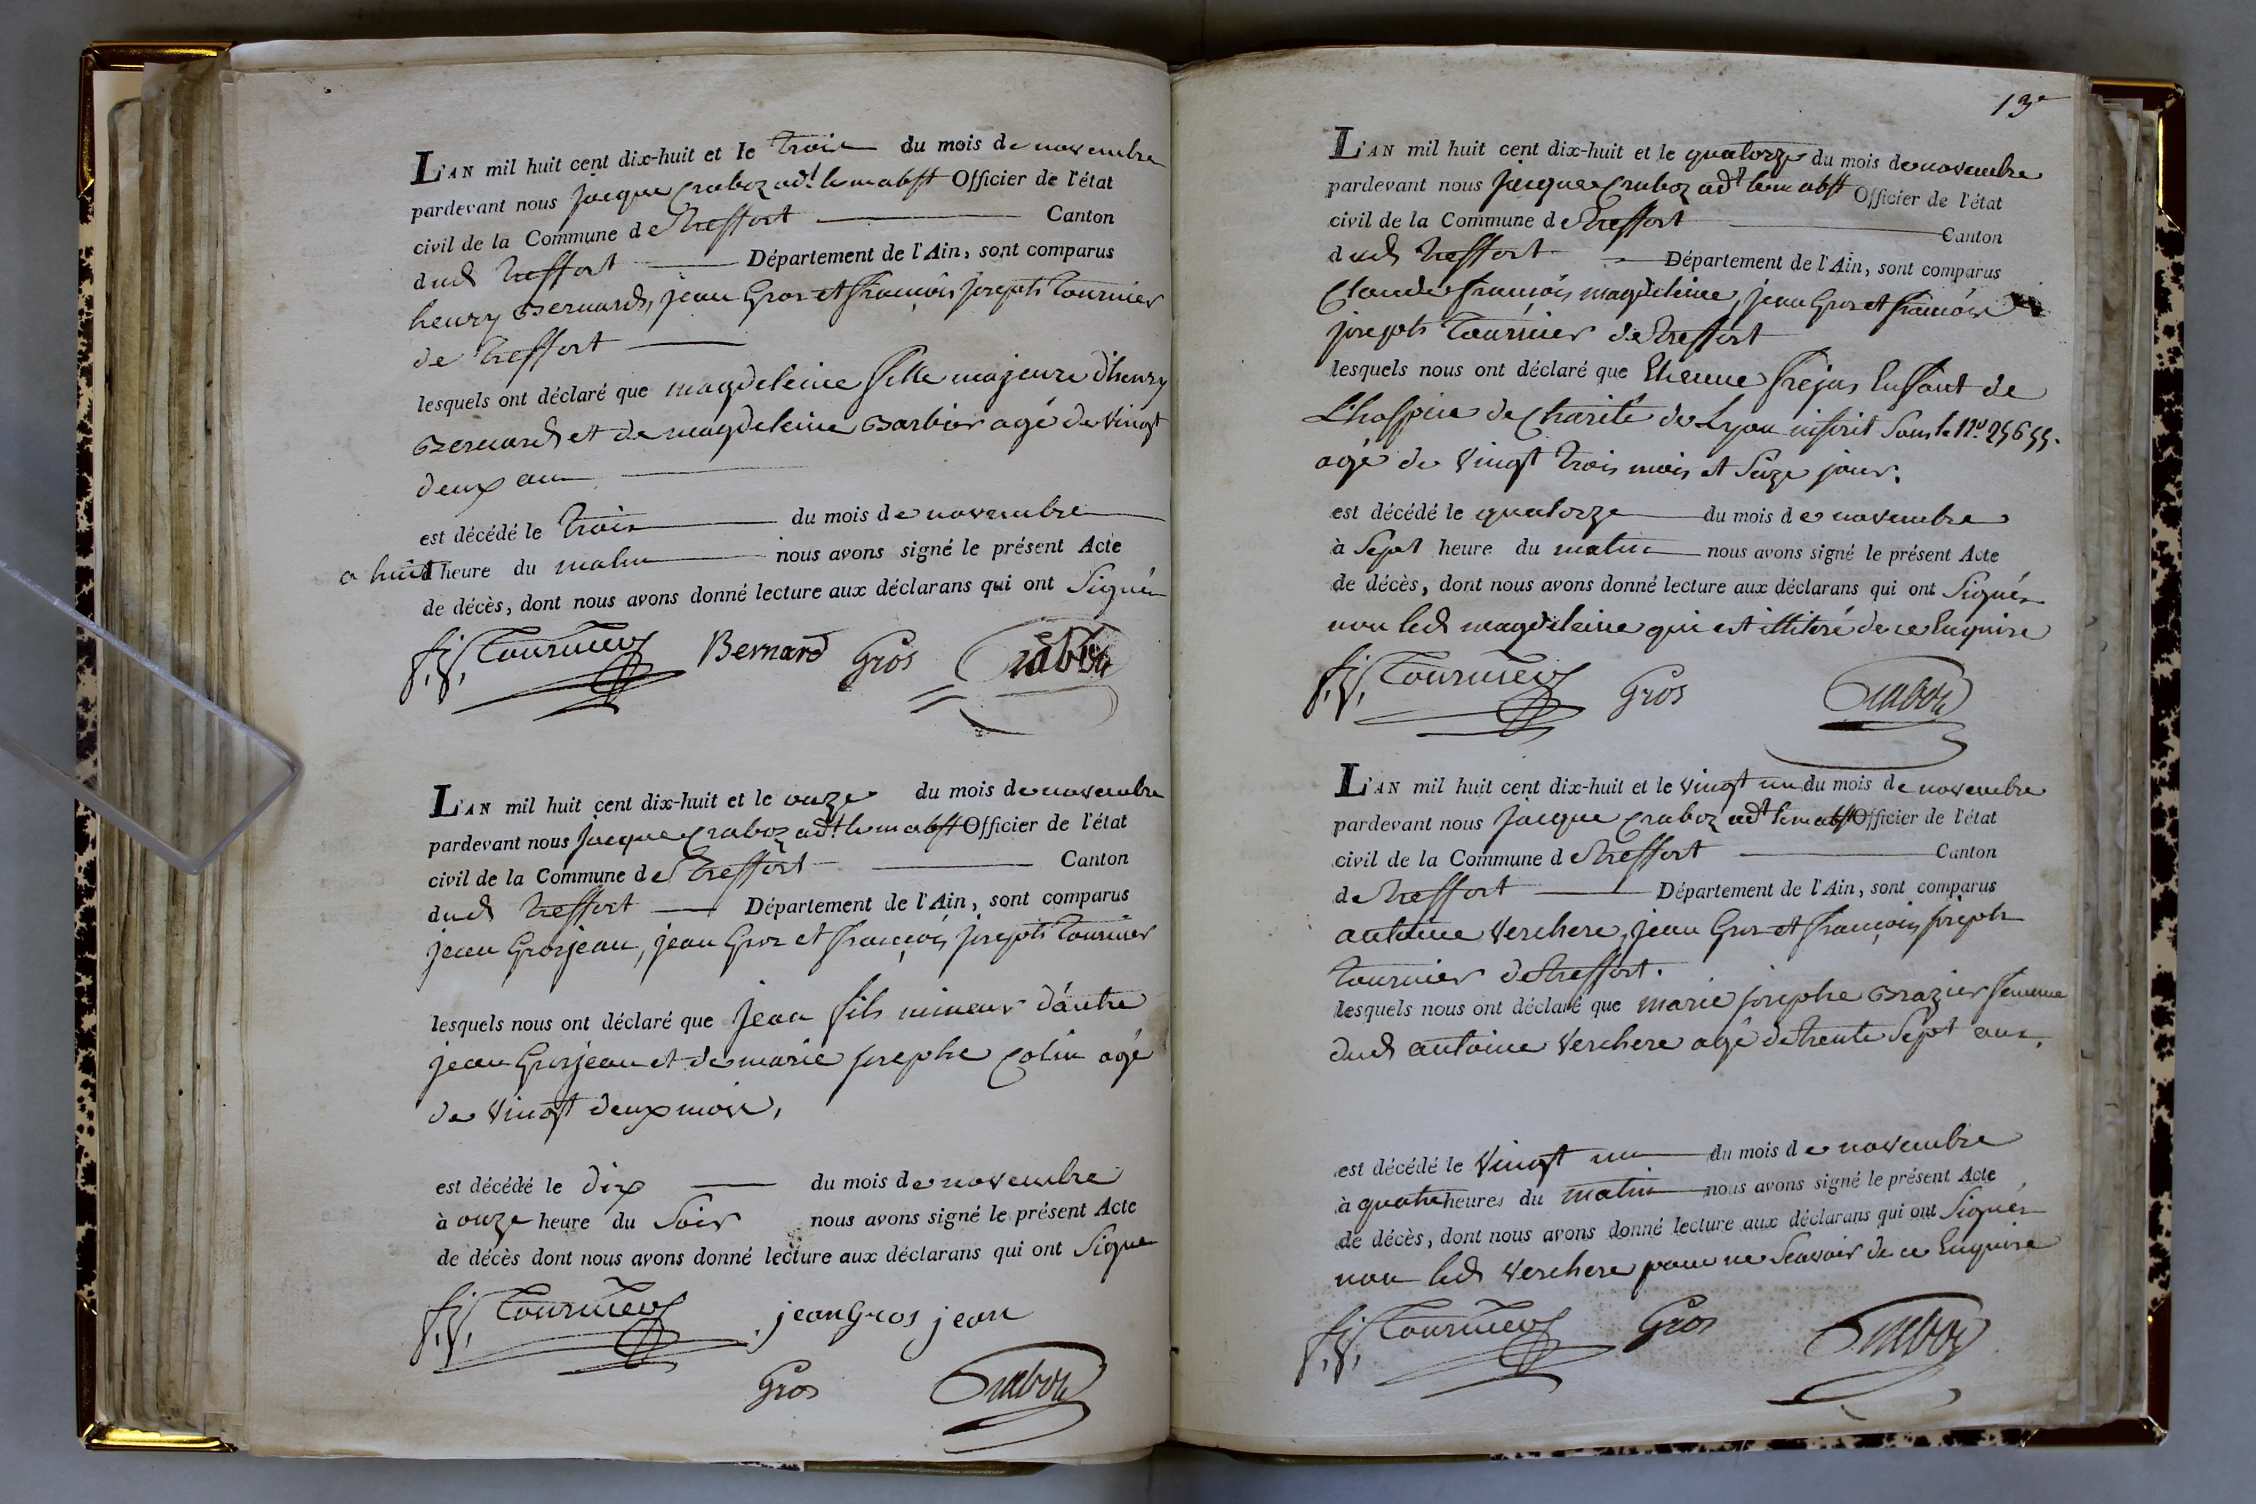 L'AN mil huit cent dix-huit et le trois du mois de novembre
pardevant nous jacque Craboz adt. le m abst Officier de l'état
civil de la Commune de treffort Canton
dud treffort Département de l'Ain, sont comparus
henry Bernard, jean Gros et françois joseph tournier
de treffort
lesquels ont déclaré que magdeleine fille majeure d'henry
Bernard et de magdeleine Barbier agé de vingt
deux ans
est décédé le trois du mois de novembre
a huit heure du matin nous avons signé le présent Acte
de décès, dont nous avons donné lecture aux déclarans qui ont Signés
f. j. Tournier Bernard Gros Craboz
L'AN mil huit cent dix-huit et le onze du mois de novembre
pardevant nous jacque Craboz adt. le m abst Officier de l'état
civil de la Commune de treffort Canton
dud treffort Département de l'Ain, sont comparus
jean Grosjean, jean Gros et françois joseph tournier
lesquels nous ont déclaré que jean fils mineur d'autre
jean Grosjean et de marie josephe Colin agé
de vingt deux mois,
est décédé le dix du mois de novembre
à onze heure du Soir nous avons signé le présent Acte
de décès dont nous avons donné lecture aux déclarans qui ont Signé
f. j. Tournier jean Gros jean
Gros Craboz
13e
L'AN mil huit cent dix-huit et le quatorze du mois de novembre
pardevant nous jacque Craboz adt le m abst Officier de l'état
civil de la Commune de treffort Canton
dud treffort Département de l'Ain, sont comparus
Claude françois magdeleine, jean Gros et françois
joseph tournier de treffort
lesquels nous ont déclaré que Etienne frejas Enffant de
L'hospice de Charité de Lyon inscrit Sous le No. 25655.
agé de vingt trois mois et Seize jour.
est décédé le quatorze du mois de novembre
à Sept heure du matin nous avons signé le présent Acte
de décès, dont nous avons donné lecture aux déclarans qui ont Signés
non led magdeleine qui est illiteré de ce Enquise
f. j. Tournier Gros Craboz
L'AN mil huit cent dix-huit et le vingt un du mois de novembre
pardevant nous jacque Craboz adt le m abst Officier de l'état
civil de la Commune de treffort Canton
de treffort Département de l'Ain, sont comparus
antoine Verchere, jean Gros et françois joseph
tournier de treffort.
lesquels nous ont déclaré que marie josephe Brazier femme
dud antoine Verchere agé de trente Sept ans,
est décédé le vingt un du mois de novembre
à quatre heures du matin nous avons signé le présent Acte
de décès, dont nous avons donné lecture aux déclarans qui ont Signés
non led Verchere pour ne Scavoir de ce Enquise
f. j. Tournier Gros Craboz